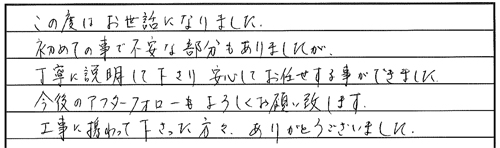 この度は お世話になりました.
初めての事で不安な部分もありましたが.
丁寧に説明して下さり 安心してお任せする事ができました.
今後のアフターフォローもよろしくお願い致します.
工事に携わって下さった方々. ありがとうございました.